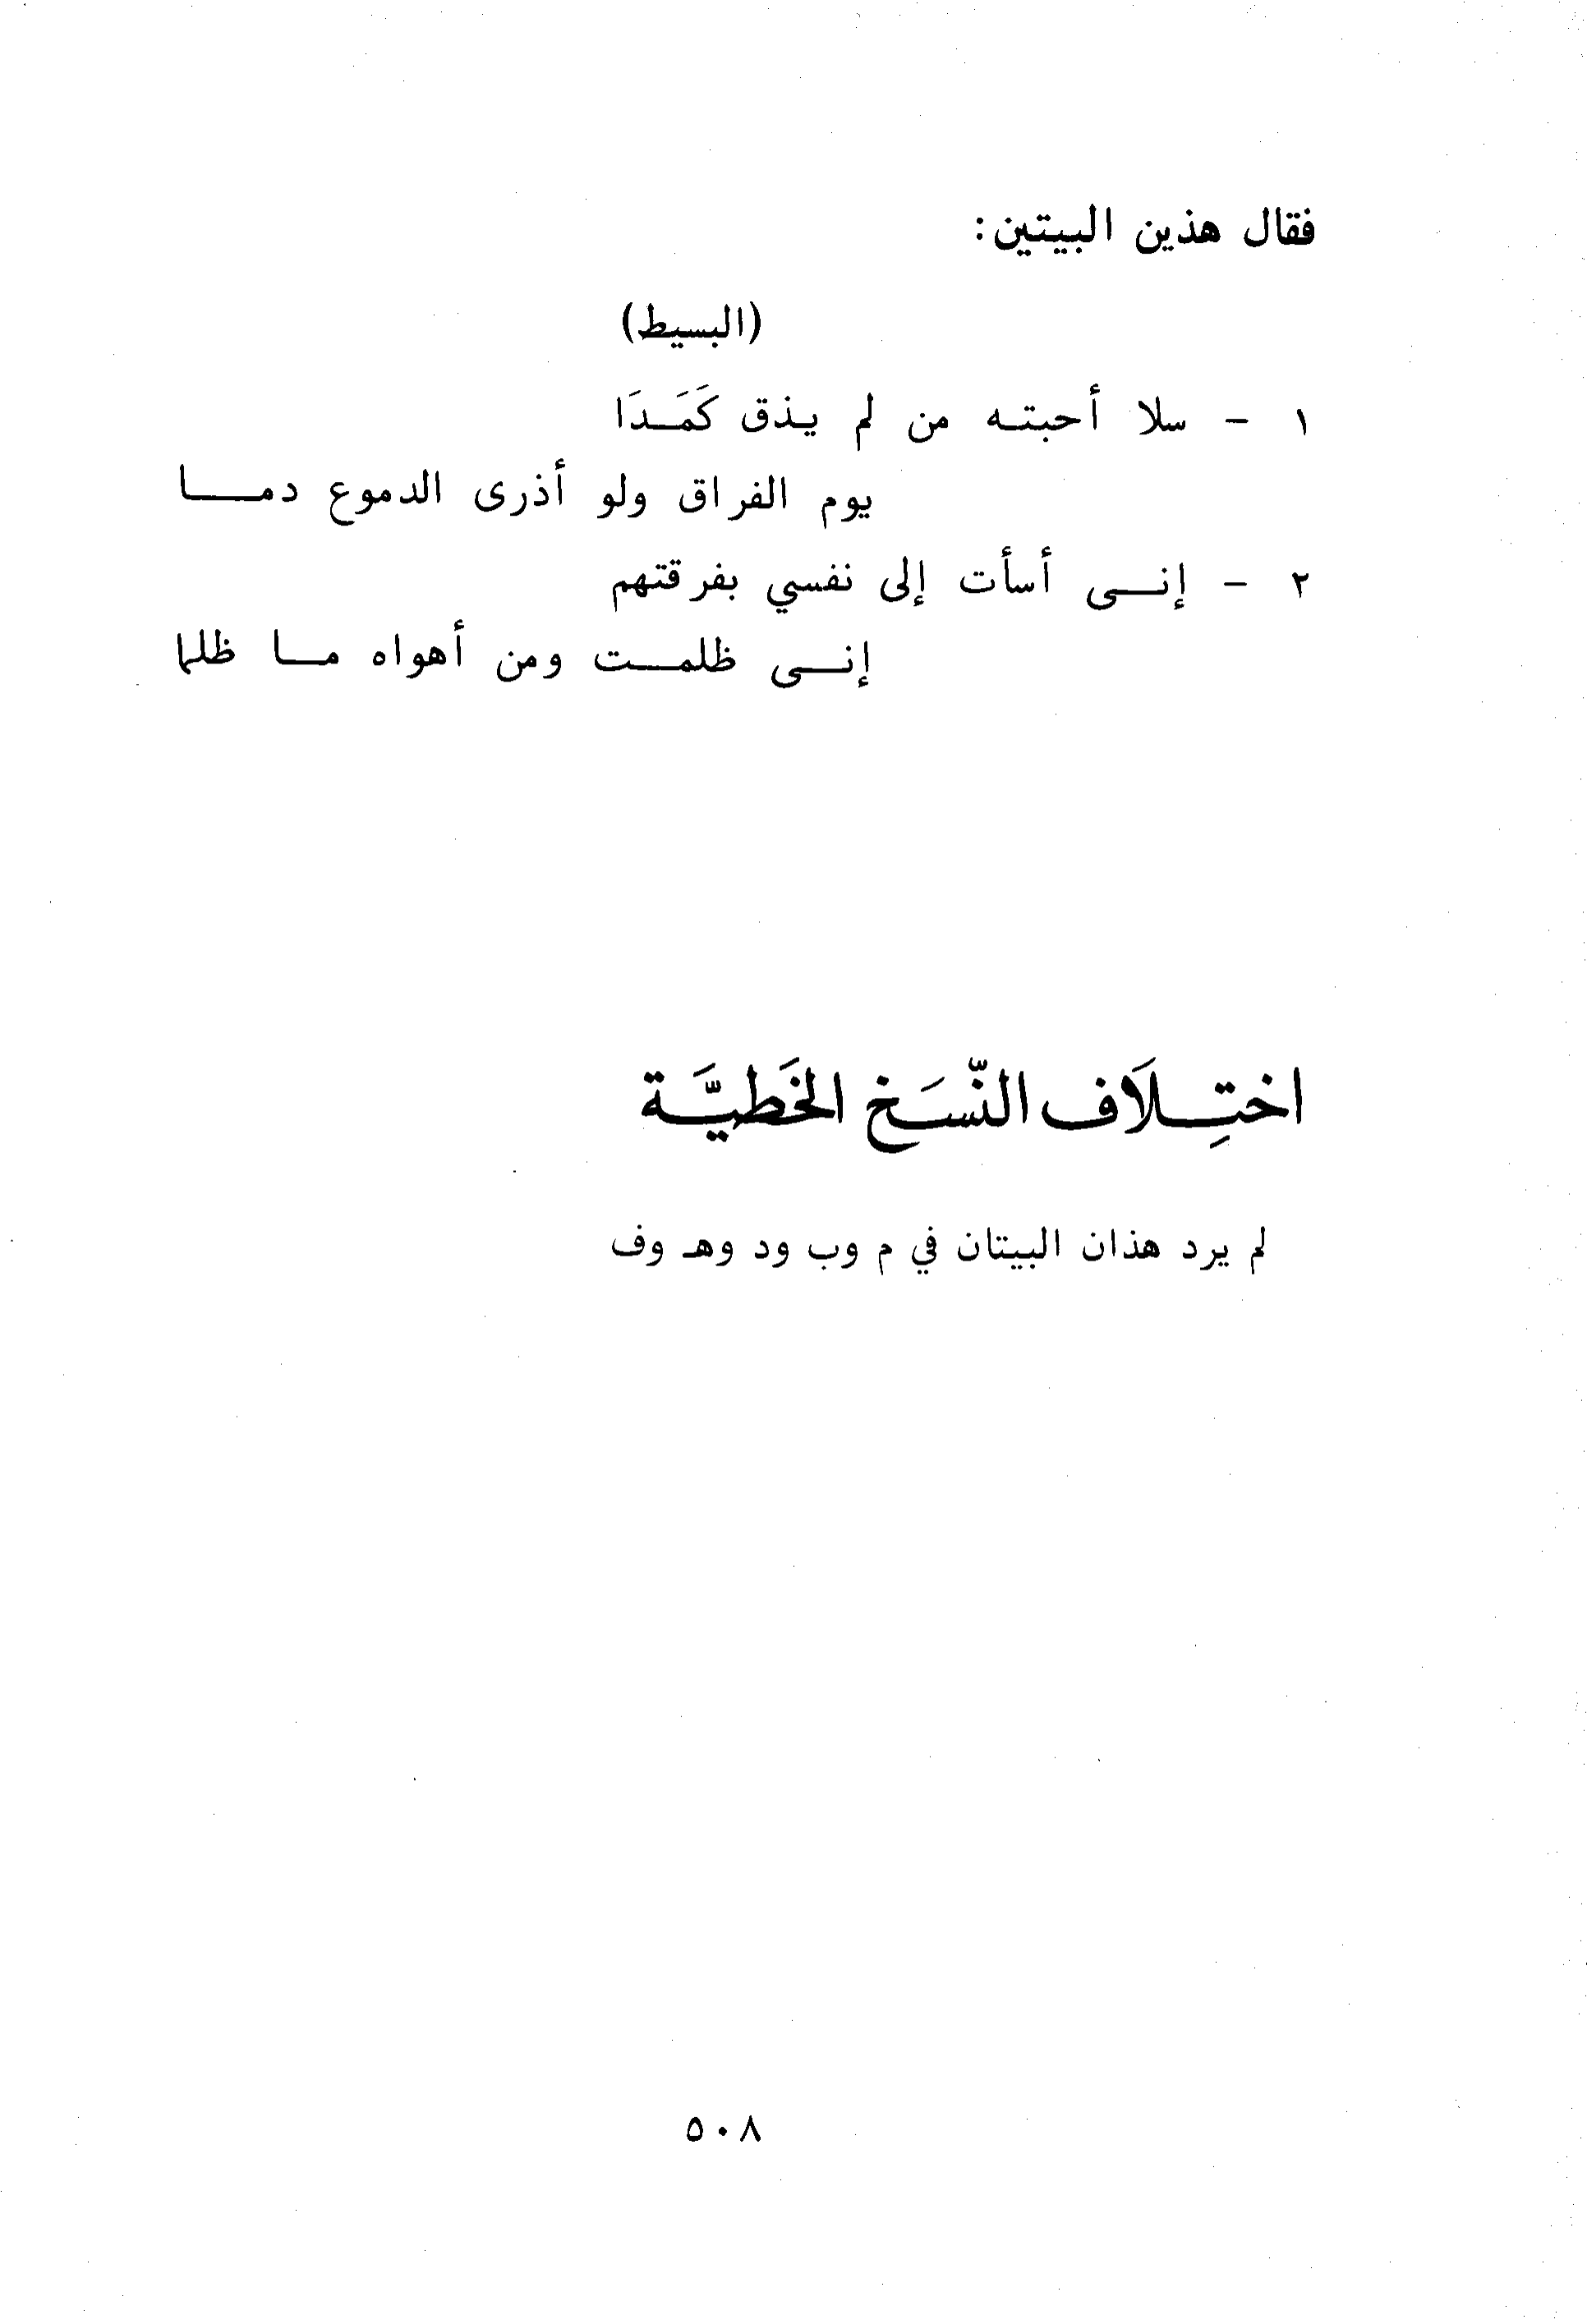 فقال هذين البيتين:
(البسيط)
١ - سلا أحبته من لم يذق كَمَدَا
يوم الفراق ولو أذرى الدموع دما
٢ - إنى أسأت إلى نفسي بفرقتهم
إنى ظلمت ومن أهواه ما ظلما
اختِلَاف النّسَخ الخَطيَّة
لم يرد هذان البيتان في م وب ود وهـ وف
٥٠٨